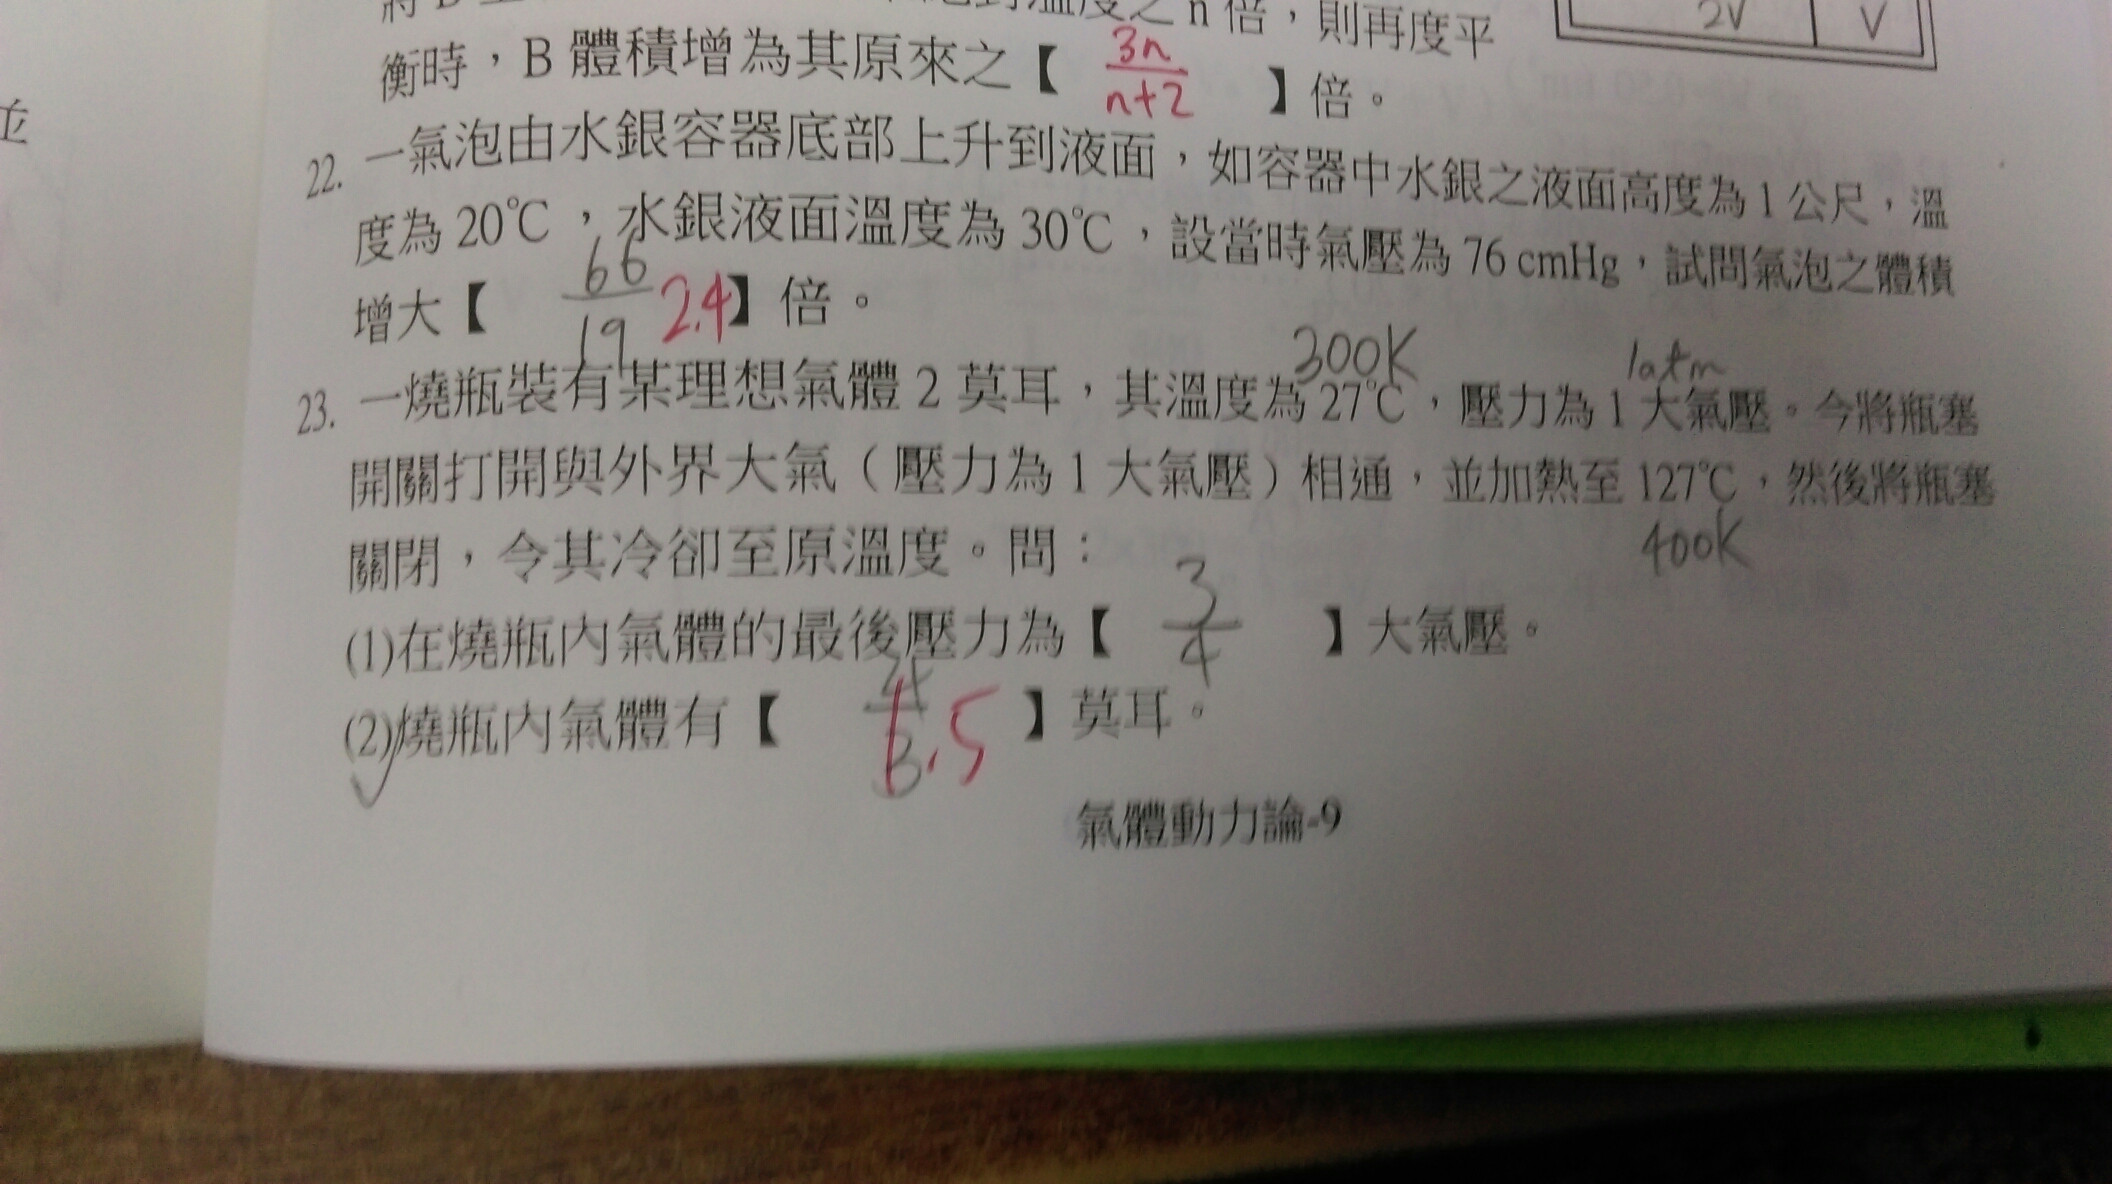 2V V
溫度之 n 倍，則再度平
衡時，B 體積增為其原來之【 3n/n+2 】倍。
並
22. 一氣泡由水銀容器底部上升到液面，如容器中水銀之液面高度為 1 公尺，溫
度為 20℃，水銀液面溫度為 30℃，設當時氣壓為 76 cmHg，試問氣泡之體積
增大【 66/19 2.4 】倍。
300K 1atm
23. 一燒瓶裝有某理想氣體 2 莫耳，其溫度為 27℃，壓力為 1 大氣壓。今將瓶塞
開關打開與外界大氣（壓力為 1 大氣壓）相通，並加熱至 127℃，然後將瓶塞
400K
關閉，令其冷卻至原溫度。問：
(1)在燒瓶內氣體的最後壓力為【 3/4 】大氣壓。
(2)燒瓶內氣體有【 1.5 】莫耳。
氣體動力論-9